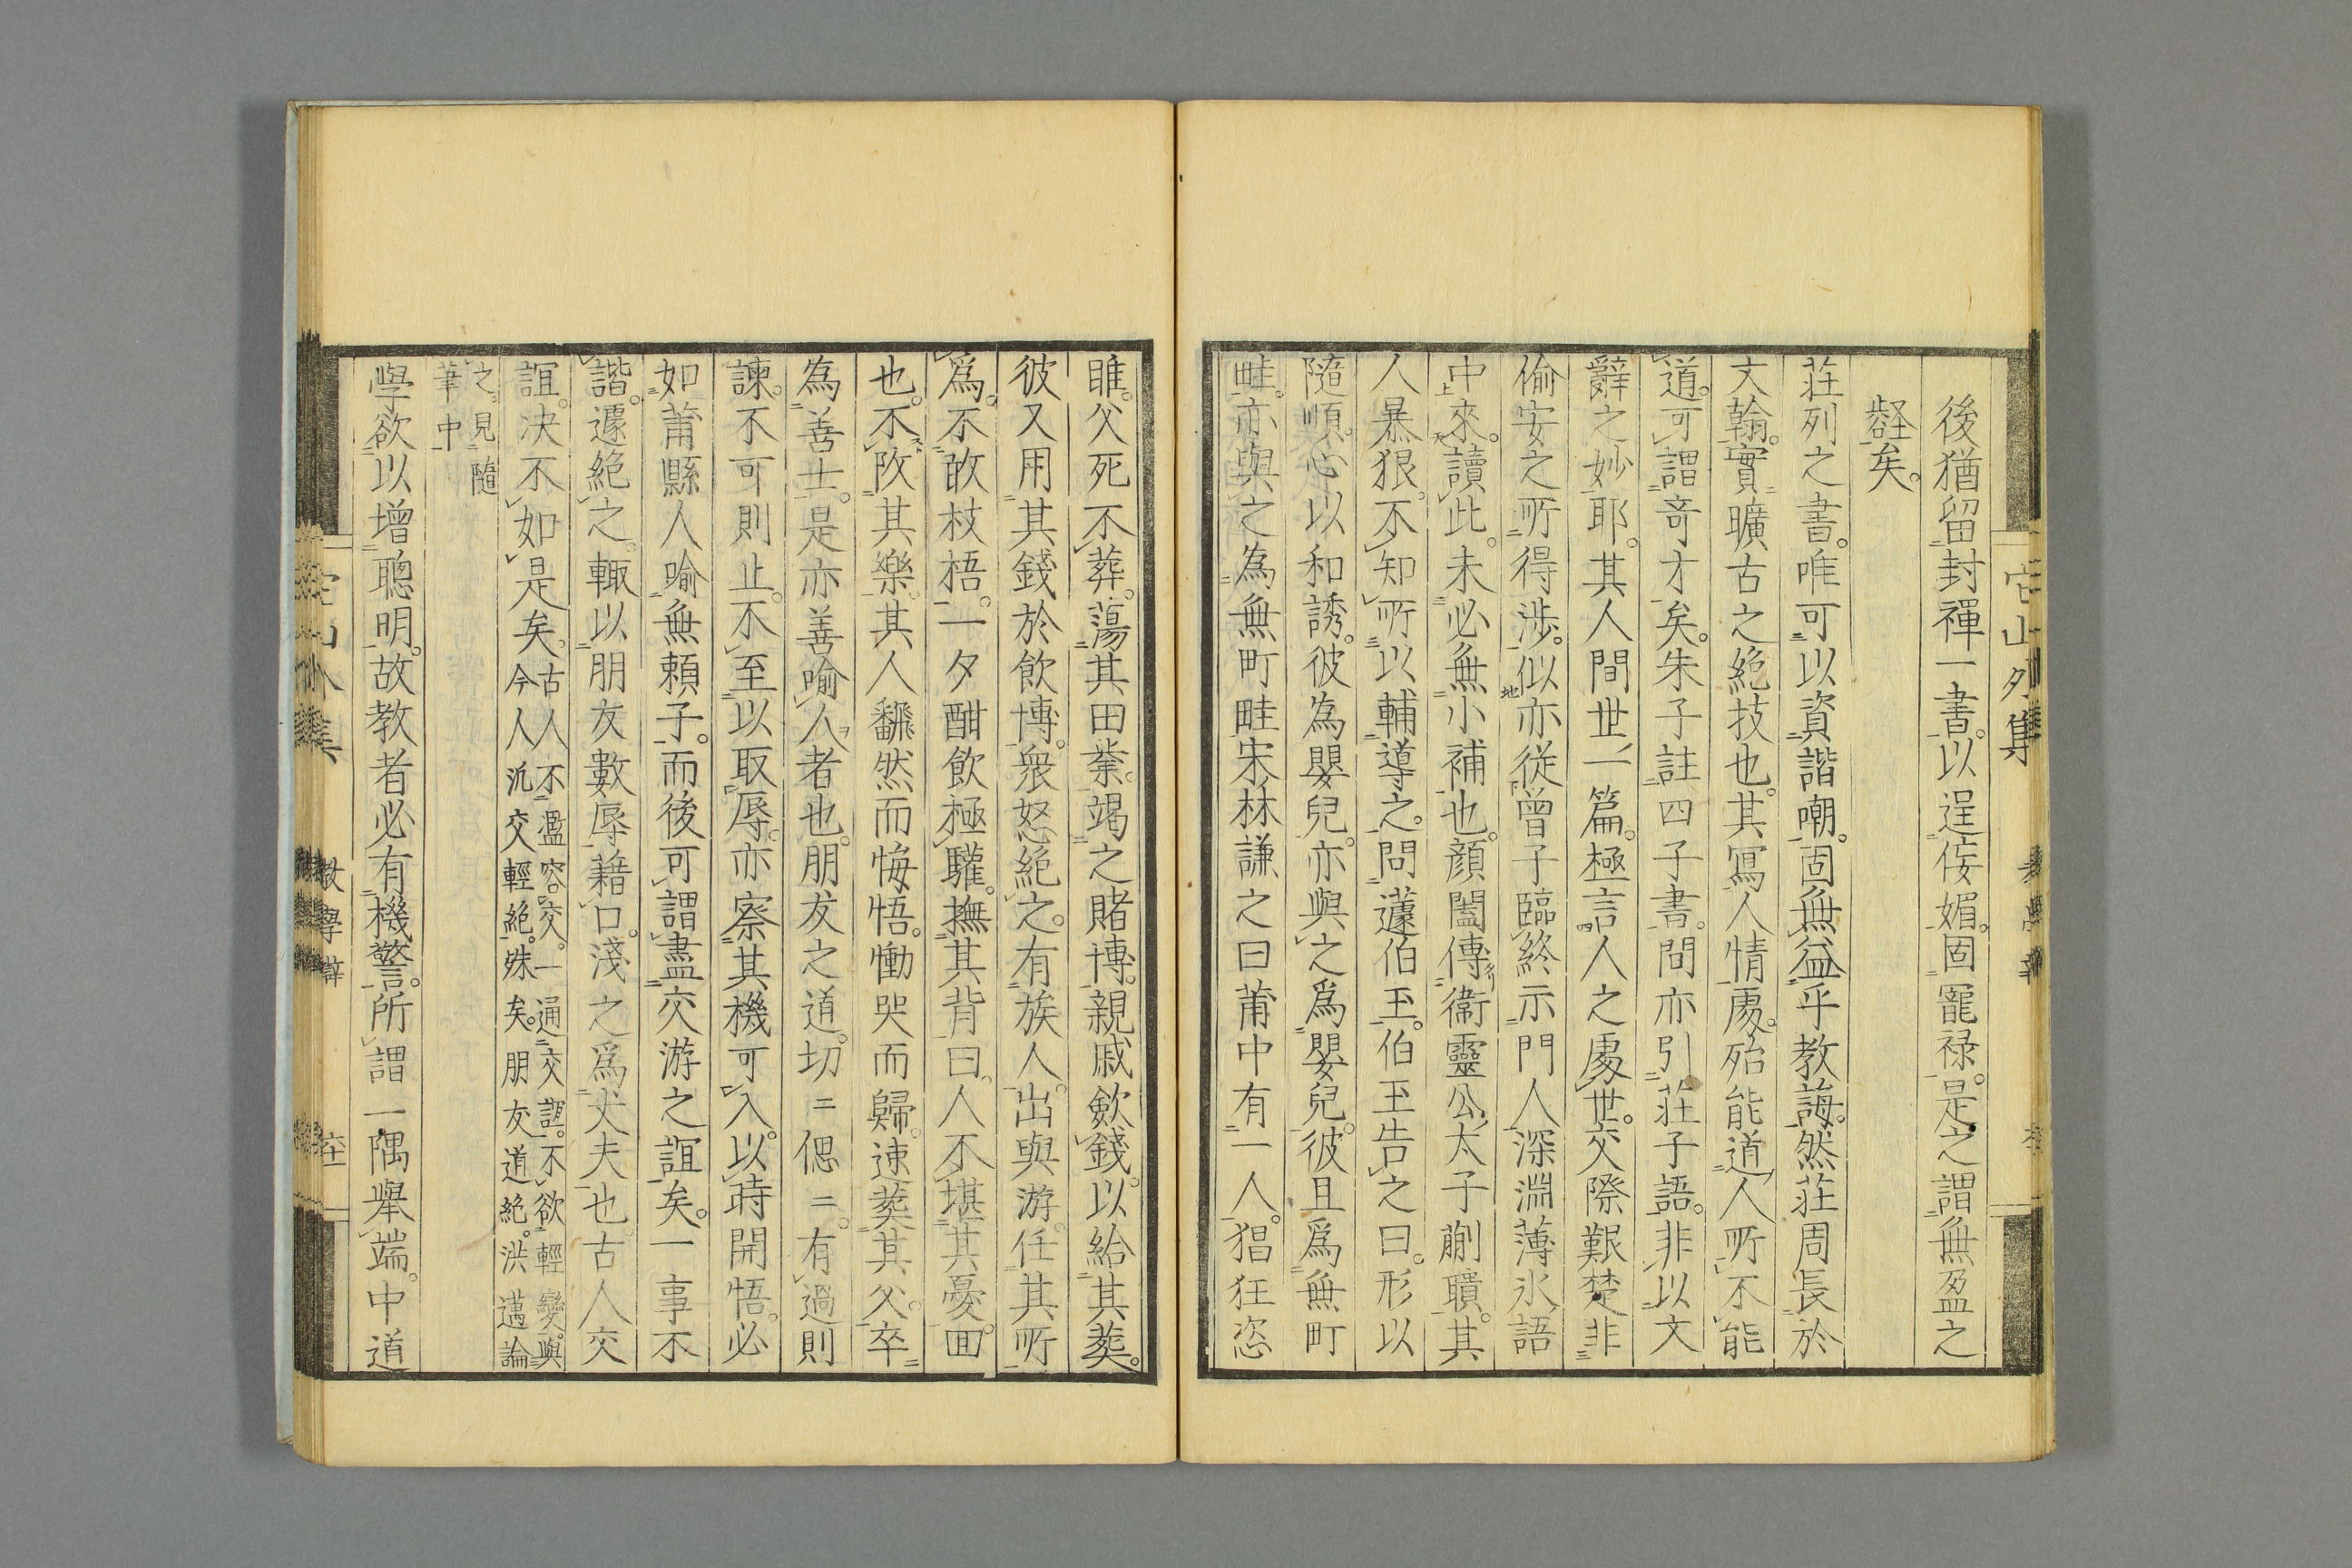 後猶留封禪一書以逞侫媚固寵祿是之謂無盈之
壑矣
莊列之書唯可以資諧嘲固無益乎教誨然莊周長於
文翰實曠古之絶技也其冩人情處殆能道人所不能
道可謂奇才矣朱子註四子書間亦引莊子語非以文
辭之妙耶其人間世一篇極言人之處世交際艱楚非
偷安之所得渉似亦從曾子臨終示門人深淵薄氷語
中來讀此未必無小補也顔闔傳衞靈公太子蒯聵其
人暴狠不知所以輔導之問蘧伯玉伯玉告之曰形以
隨順心以和誘彼為嬰兒亦與之爲嬰兒彼且爲無町
畦亦與之為無町畦宋林謙之曰莆中有一人猖狂恣
睢父死不葬蕩其田業竭之賭博親戚斂錢以給其葬
彼又用其錢於飲博衆怒絶之有族人出與游任其所
爲不敢枝梧一夕酣飲極驩撫其背曰人不堪其憂囬
也不改其樂其人飜然而悔悟慟哭而歸速葬其父卒
為善士是亦善喻人者也朋友之道切〻偲〻有過則
諫不可則止不至以取辱亦察其機可入以時開悟必
如莆縣人喻無頼子而後可謂盡交游之誼矣一事不
諧遽絶之輙以朋友數辱藉口淺之爲丈夫也古人交
誼決不如是矣古人不濫容交一通交誼不欲輕變與
今人汎交輕絶殊矣朋友道絶洪邁論
之見隨
筆中
學欲以增聰明故教者必有機警所謂一隅舉端中道